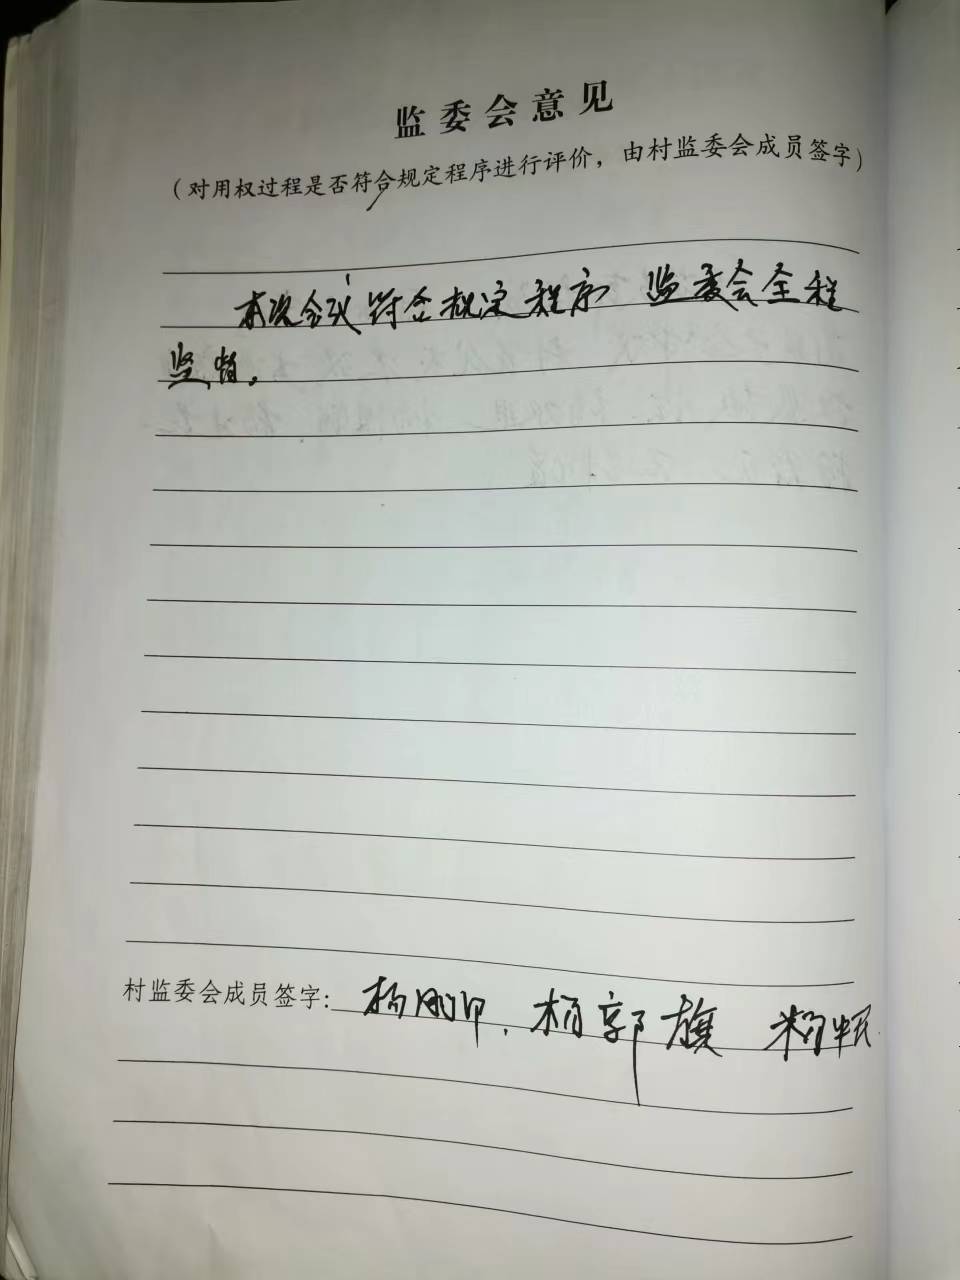 监委会意见
（对用权过程是否符合规定程序进行评价，由村监委会成员签字）
本次会议符合规定程序 监委会全程
监督。
村监委会成员签字： 杨刚印、杨郭旗 杨